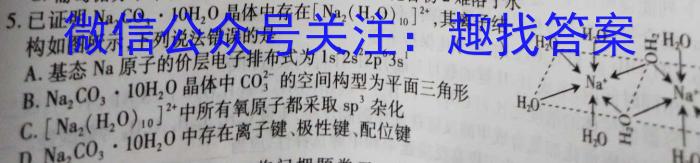 5.已证明Na₂CO₃·10H₂O晶体中存在[Na₂(H₂O)₁₀]²⁺,其
微信公众号关注：趣找答案
A.基态Na原子的价层电子排布式为1s²2s²2p⁶3s
B.Na₂CO₃·10H₂O晶体中CO₃²⁻的空间构型为平面三角形
C.[Na₂(H₂O)₁₀]²⁺中所有氧原子都采取sp³杂化
D.Na₂CO₃·10H₂O中存在离子键、极性键、配位键
H₂O
H₂O
H₂O
Na⁺
Na⁺
H₂O
H₂O
H₂O
H₂O